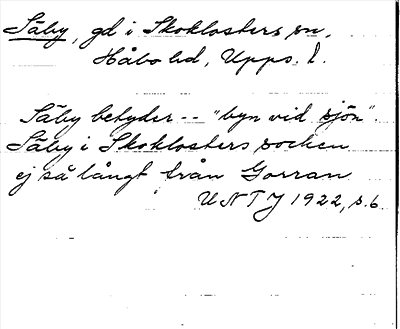 Säby, gd i Skoklosters sn,
Håbo hd, Upps. l.
Säby betyder -- "byn vid sjön".
Säby i Skoklosters socken
ej så långt från Gorran
UNTJ 1922, s. 6